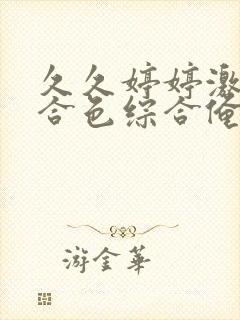 久久婷婷激
合色综合俺
游金華